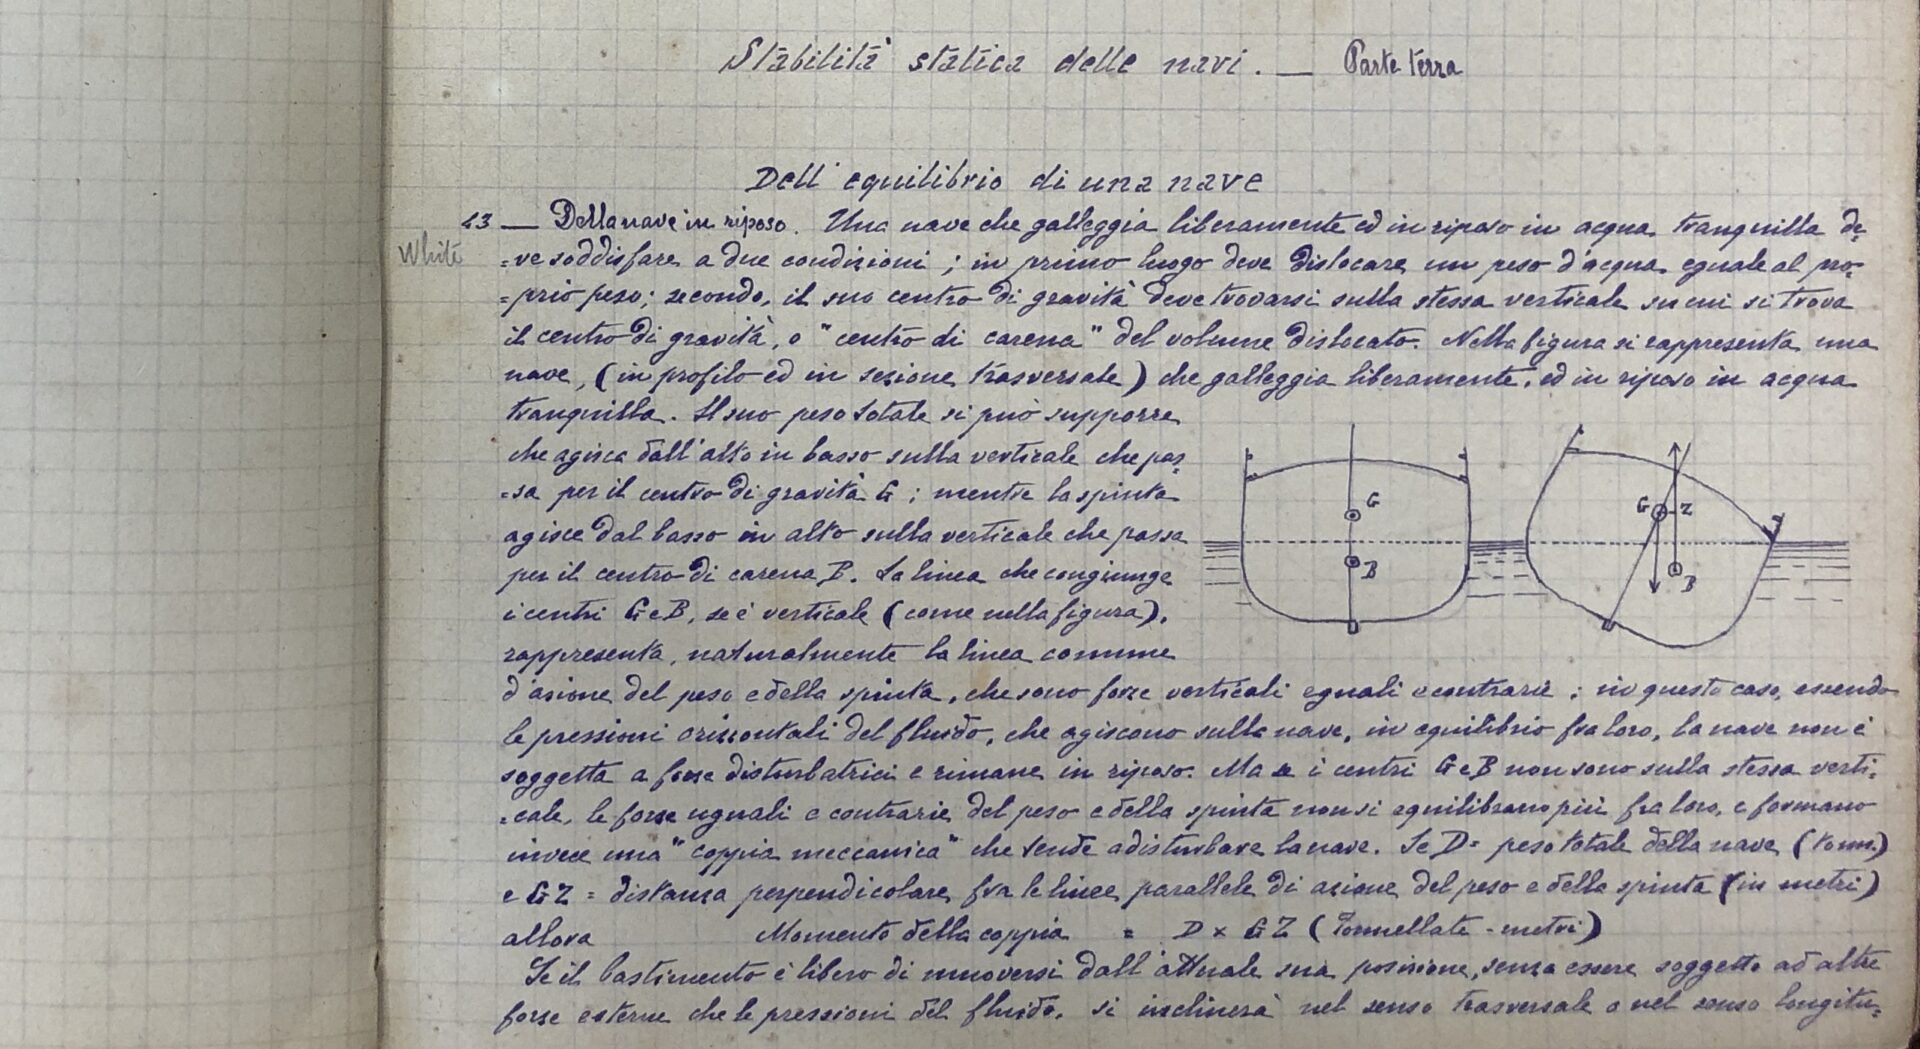 Stabilità statica delle navi. — Parte terza
Dell'equilibrio di una nave
43 — Della nave in riposo. Una nave che galleggia liberamente ed in riposo in acqua tranquilla de-
White
=ve soddisfare a due condizioni; in primo luogo deve dislocare un peso d'acqua eguale al pro-
=prio peso; secondo, il suo centro di gravità deve trovarsi sulla stessa verticale su cui si trova
il centro di gravità, o "centro di carena" del volume dislocato. Nella figura si rappresenta una
nave, (in profilo ed in sezione trasversale) che galleggia liberamente, ed in riposo in acqua
tranquilla. Il suo peso totale si può supporre
che agisca dall'alto in basso sulla verticale che pas-
=sa per il centro di gravità G; mentre la spinta
agisce dal basso in alto sulla verticale che passa
per il centro di carena B. La linea che congiunge
i centri G e B, se è verticale (come nella figura),
rappresenta, naturalmente la linea comune
G
B
G
Z
B
d'azione del peso e della spinta, che sono forze verticali eguali e contrarie; in questo caso, essendo
le pressioni orizzontali del fluido, che agiscono sulla nave, in equilibrio fra loro, la nave non è
soggetta a forze disturbatrici e rimane in riposo. Ma se i centri G e B non sono sulla stessa verti=
=cale, le forze uguali e contrarie del peso e della spinta non si equilibrano più fra loro, e formano
invece una "coppia meccanica" che tende a disturbare la nave. Se D = peso totale della nave (tonn.)
e GZ = distanza perpendicolare fra le linee parallele di azione del peso e della spinta (in metri)
allora Momento della coppia = D × GZ (Tonnellate-metri)
Se il bastimento è libero di muoversi dall'attuale sua posizione, senza essere soggetto ad altre
forze esterne che le pressioni del fluido, si inclinerà nel senso trasversale o nel senso longitu=